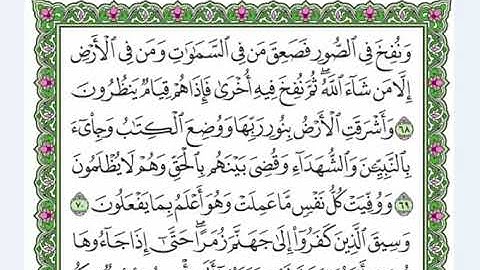 وَنُفِخَ فِي ٱلصُّورِ فَصَعِقَ مَن فِي ٱلسَّمَٰوَٰتِ وَمَن فِي ٱلْأَرْضِ
إِلَّا مَن شَآءَ ٱللَّهُ ۖ ثُمَّ نُفِخَ فِيهِ أُخْرَىٰ فَإِذَا هُمْ قِيَامٌ يَنظُرُونَ
٦٨ وَأَشْرَقَتِ ٱلْأَرْضُ بِنُورِ رَبِّهَا وَوُضِعَ ٱلْكِتَٰبُ وَجِا۟يٓءَ
بِٱلنَّبِيِّـۧنَ وَٱلشُّهَدَآءِ وَقُضِيَ بَيْنَهُم بِٱلْحَقِّ وَهُمْ لَا يُظْلَمُونَ
٦٩ وَوُفِّيَتْ كُلُّ نَفْسٍ مَّا عَمِلَتْ وَهُوَ أَعْلَمُ بِمَا يَفْعَلُونَ ٧٠
وَسِيقَ ٱلَّذِينَ كَفَرُوٓا۟ إِلَىٰ جَهَنَّمَ زُمَرًا ۖ حَتَّىٰٓ إِذَا جَآءُوهَا